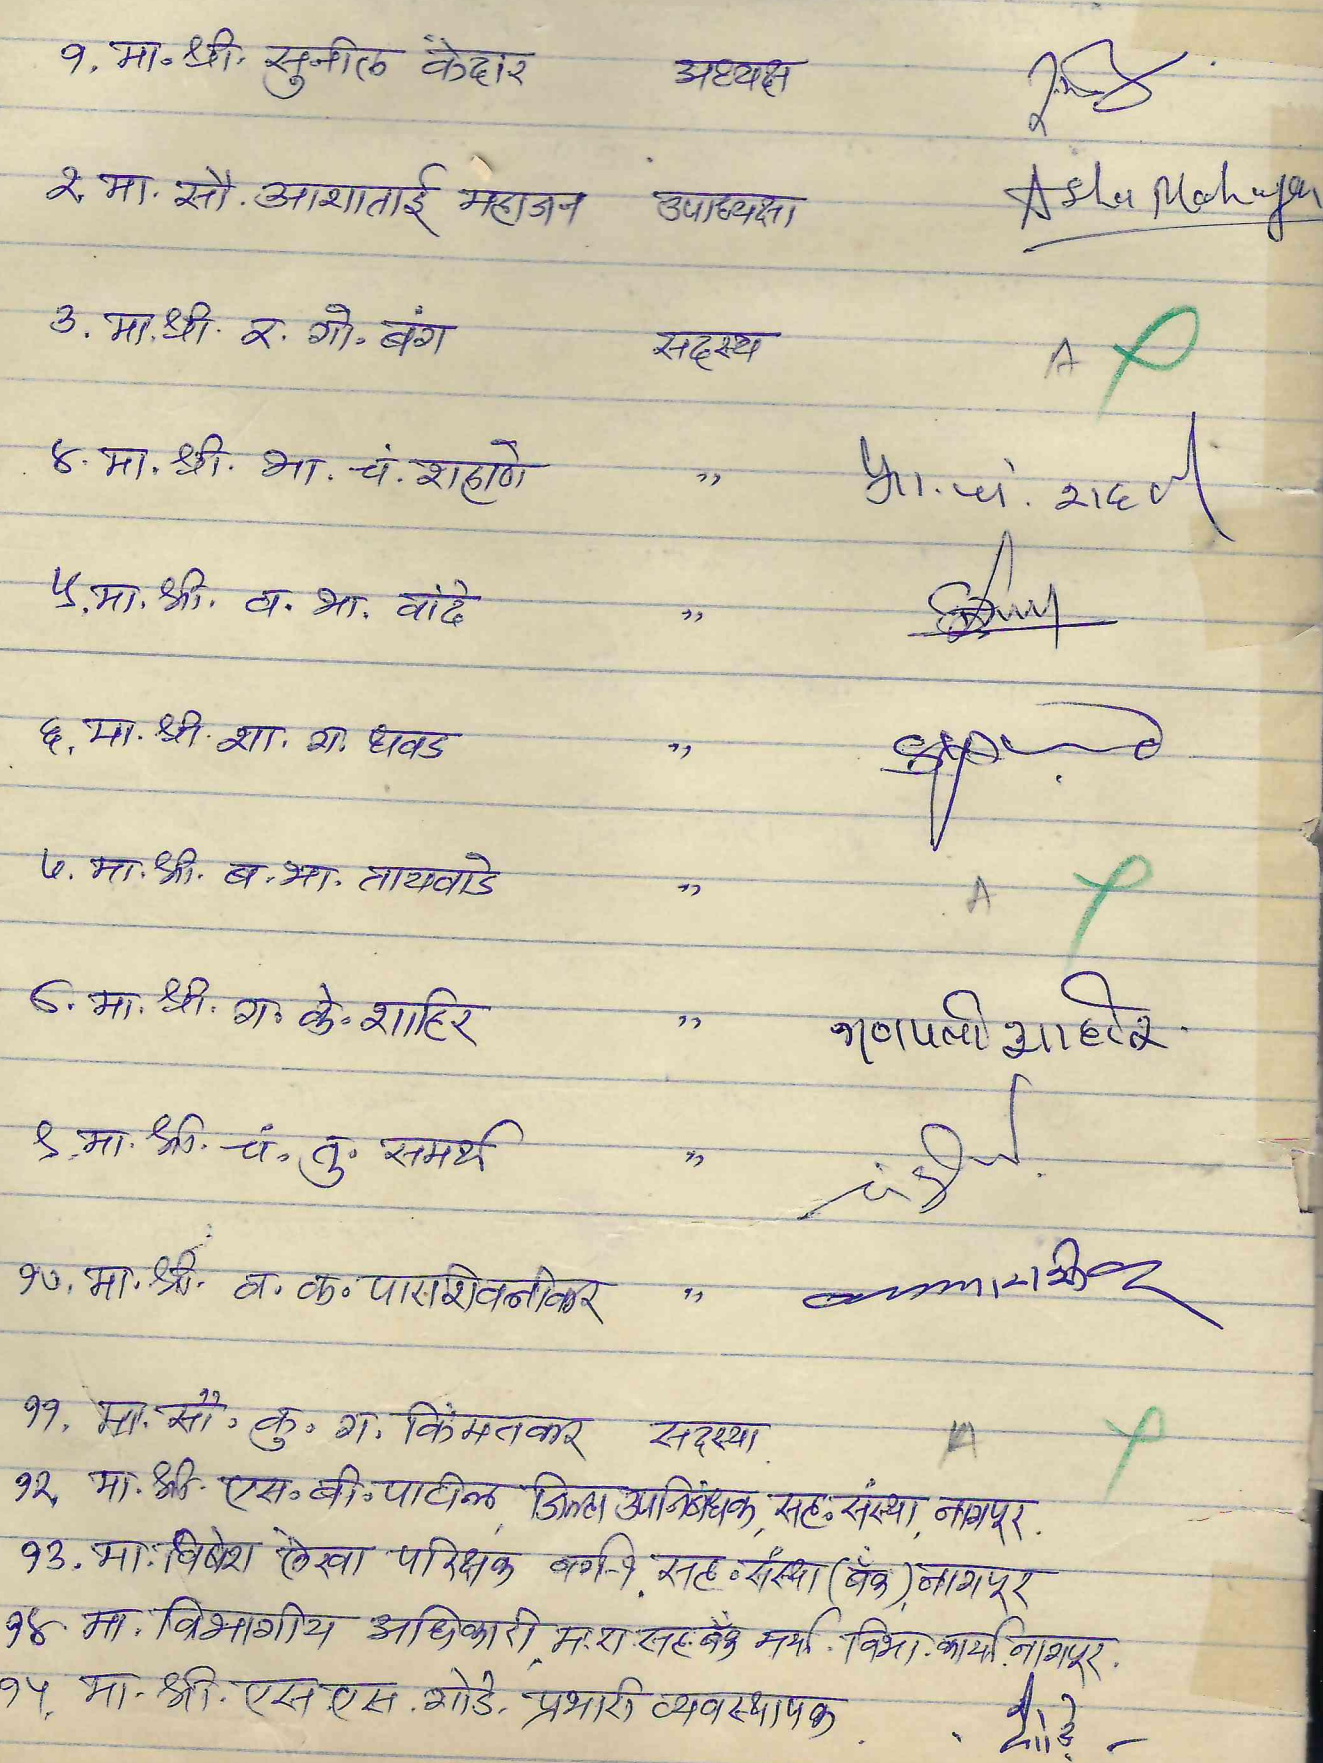 १. मा. श्री. सुनील केदार अध्यक्ष
२. मा. सौ. आशाताई महाजन उपाध्यक्षा Asha Mahajan
३. मा. श्री. र. गो. बंग सदस्य A
४. मा. श्री. भा. चं. शहाणे ,, भा. चं. शहाणे
५. मा. श्री. व. भा. वांदे ,,
६. मा. श्री. शा. ग. धवड ,,
७. मा. श्री. ब. भा. तायवाडे ,, A
८. मा. श्री. ग. के. शाहिर ,, गणपती शाहीर
९. मा. श्री. चं. तु. समर्थ ,,
१०. मा. श्री. व. क. पारशिवनीकर ,,
११. मा. सौ. कु. ग. किंमतकर सदस्या A
१२. मा. श्री. एस. बी. पाटील, जिल्हा उपनिबंधक, सह. संस्था, नागपूर.
१३. मा. विषेश लेखा परिक्षक वर्ग-१, सह. संस्था (बँक), नागपूर
१४. मा. विभागीय अधिकारी, म. रा. सह. बँक मर्या. विभा. कार्या. नागपूर.
१५. मा. श्री. एस एस. शेंडे. प्रभारी व्यवस्थापक